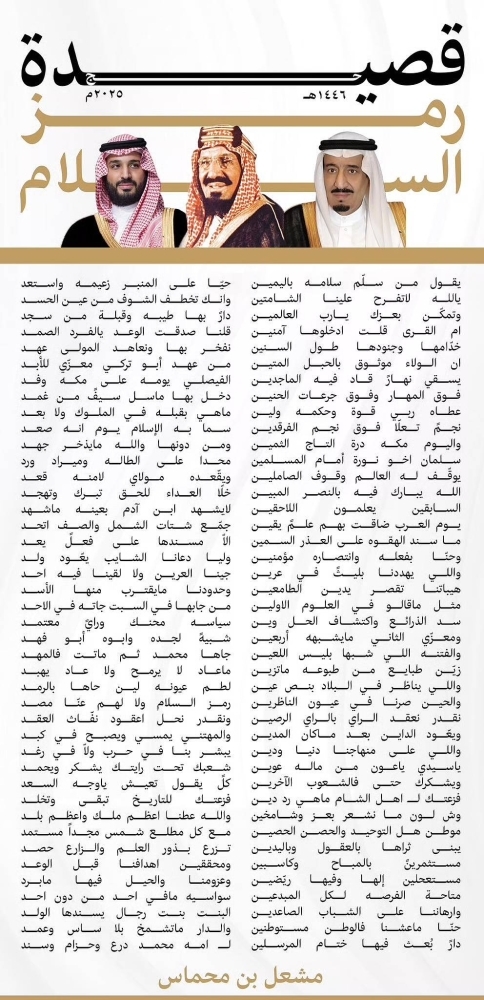 قصيدة
حج
١٤٤٦هـ
٢٠٢٥م
رمز
السلام
يقول من سلّم سلامه باليمين حيّا على المنبر زعيمه واستعد
يالله لاتفرح علينا الشامتين وانك تخطف الشوف من عين الحسد
وتمكّن بعزك يارب العالمين دارٌ بها طيبه وقبلة من سجد
ام القرى قلت ادخلوها آمنين قلنا صدقت الوعد يالفرد الصمد
خدّامها وجنودها طول السنين نفخر بها ونعاهد المولى عهد
ان الولاء موثوق بالحبل المتين من عهد أبو تركي معزّي للأبد
يسقي نهارٌ قاد فيه الماجدين الفيصلي يومه على مكه وفد
فوق المهار وفوق جرعات الحنين دخل بها ماسل سيفٌ من غمد
عطاه ربي قوة وحكمه ولين ماهي بقبله في الملوك ولا بعد
نجمٌ تعلّا فوق نجم الفرقدين سما به الإسلام يوم انه صعد
واليوم مكه درة التاج الثمين ومن دونها والله مايذخر جهد
سلمان اخو نورة أمام المسلمين محدا على الطاله وميراد ورد
يوقّف له العالم وقوف الصاملين ويقعّده مولاي لامنه قعد
الله يبارك فيه بالنصر المبين خلّا العداء للحق تبرك وتهجد
السابقين يعلمون اللاحقين لايشهد ابن آدم بعينه ماشهد
يوم العرب ضاقت بهم علمٌ يقين جمّع شتات الشمل والصف اتحد
ما سند الهقوه على العذر السمين الاّ مسندها على فعلٌ يعد
وحنّا بفعله وانتصاره مؤمنين وليا دعانا الشايب يعّود ولد
واللي يهددنا بليثٌ في عرين جينا العرين ولا لقينا فيه احد
هيباتنا تقصر يدين الطامعين وحدودنا مايقترب منها الأسد
مثل ماقالو في العلوم الاولين من جابها في السبت جاته في الاحد
سد الذرائع واكتشاف الحل وين سياسه محنك ورايٌ معتمد
ومعزّي الثاني مايشبهه أربعين شبيهٌ لجده وابوه أبو فهد
والفتنه اللي شبها بليس اللعين جاها محمد ثم ماتت فالمهد
زيّن طبايع من طبوعه ماتزين ماعاد لا يرمح ولا عاد يهبد
واللي يناظر في البلاد بنص عين لطم عيونه لين حاها بالرمد
والحين صرنا في عيون الناظرين رمز السلام ولا لهم عنّا مصد
نقدر نعقد الراي بالراي الرصين ونقدر نحل اعقود نفّاث العقد
ويعّود الداين بعد ماكان المدين والمهتني يمسي ويصبح في كبد
واللي على منهاجنا دنيا ودين يبشر بنا في حرب ولاّ في رغد
ياسيدي ياعون من ماله عوين شعبك تحت رايتك يشكر ويحمد
ويشكرك حتى فالشعوب الآخرين كلّ يقول تعيش ياوجه السعد
فزعتك لـ اهل الشام ماهي رد دين فزعتك للتاريخ تبقى وتخلد
وش لون ما نشعر بعز وشامخين والله عطنا اعظم ملك واعظم بلد
موطن هل التوحيد والحصن الحصين مع كل مطلع شمس مجداً مستمد
يبنى ثراها بالعقول وباليدين تزرع بذور العلم والزارع حصد
مستثمرينٌ بالمباح وكاسبين ومحققين اهدافنا قبل الوعد
مستعجلين إلها وفيها ريّضين وعزومنا والحيل فيها مابرد
متاحة الفرصه لكل المبدعين سواسيه مافي احد من دون احد
وارهاننا على الشباب الصاعدين البنت بنت رجال يسندها الولد
حنّا ماعشنا فالوطن مستوطنين والدار ماتشمخ بلا ساس وعمد
دارٌ بُعث فيها ختام المرسلين لـ امه محمد درع وحزام وسند
مشعل بن محماس